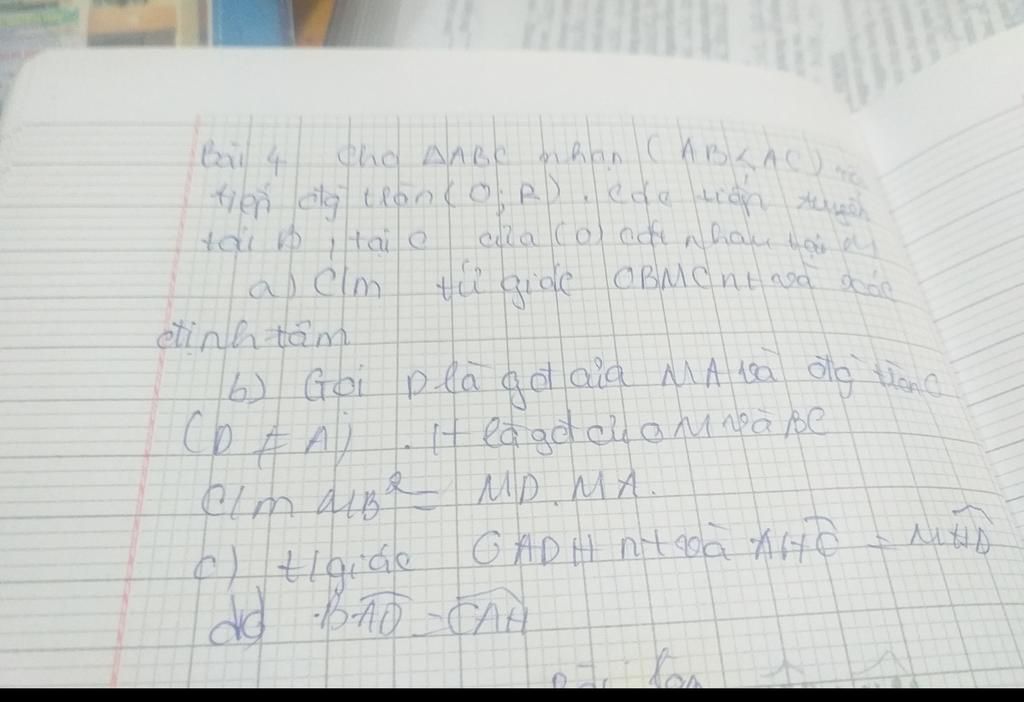 Bài 4 Cho ΔABC nhọn (AB < AC)
tiếp đtg tròn (O; R). Các tiếp tuyến
tại B, tại C của (O) cắt nhau tại M
a) C/m tứ giác OBMC nt và xác
định tâm
b) Gọi D là gđ của MA và đtg tròn
(D ≠ A). H là gđ của OM và BC
C/m MB² = MD. MA.
c) t/giác OADH nt và AHO = MHD
d) BAD = CAH